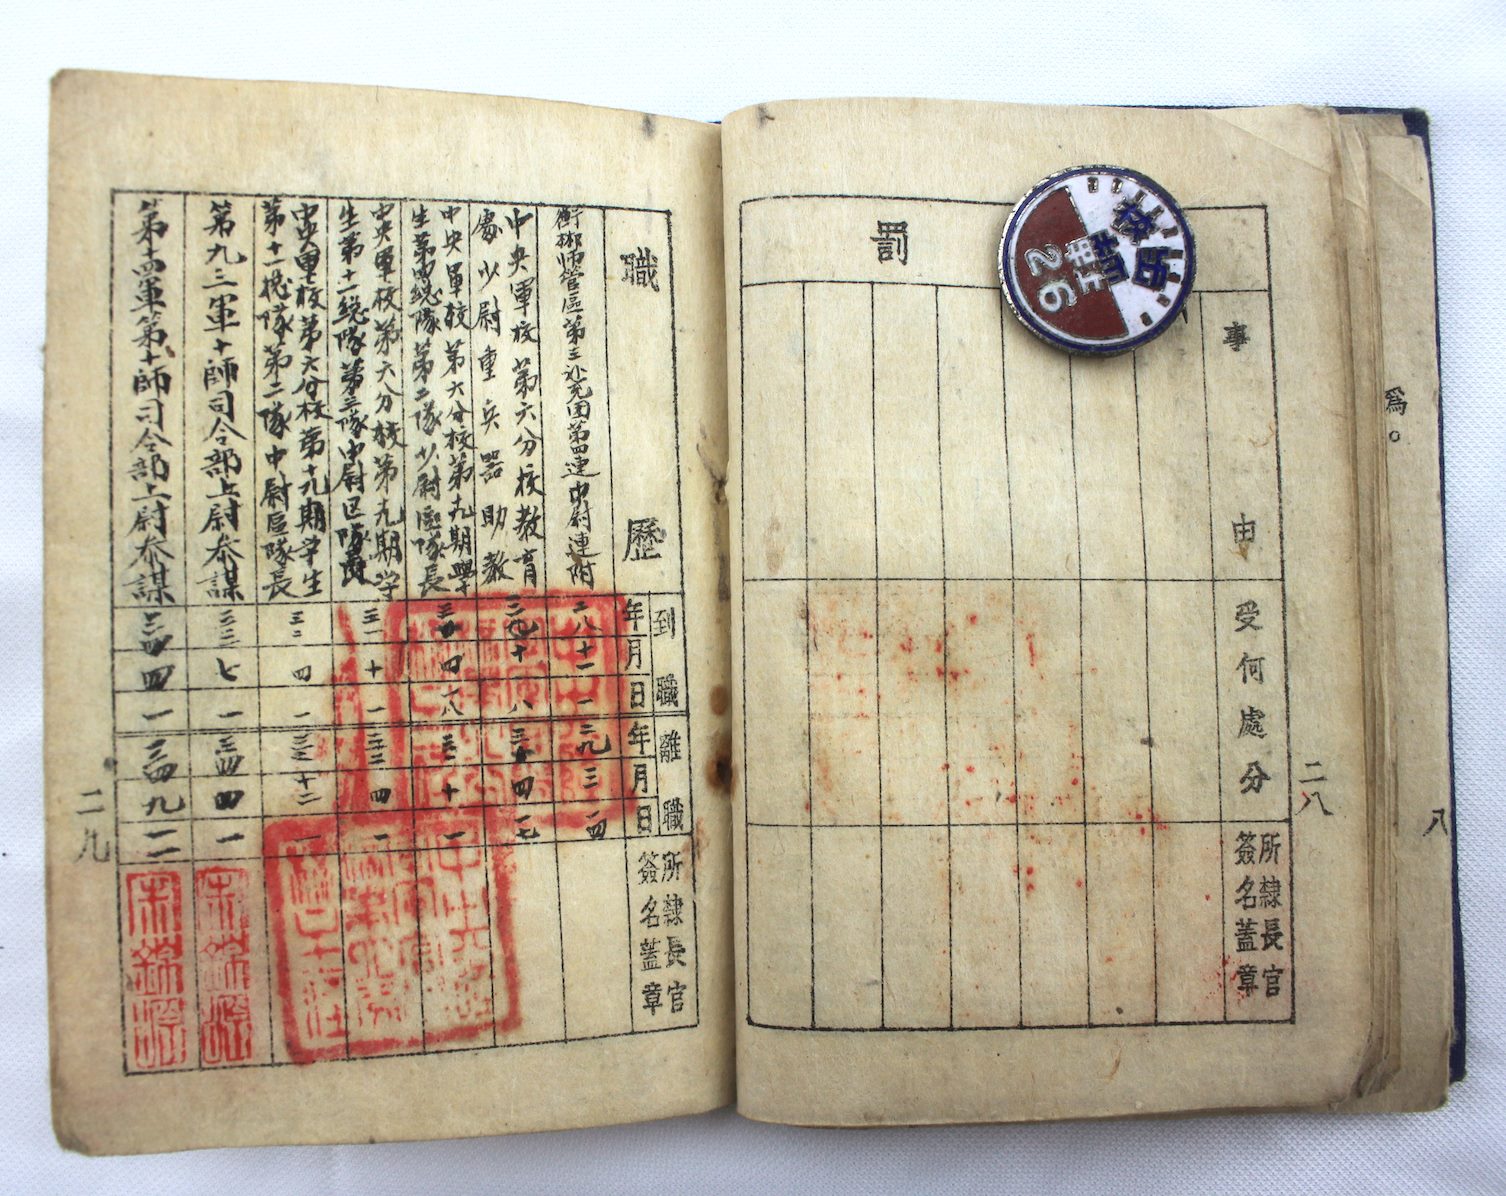 罰
事由
受何處分
所隸長官
簽名蓋章
二八
爲。
八
26
職歷
到職
年月日
離職
年月日
所隸長官
簽名蓋章
衡郴師管區第三补充团第四連中尉連附
二八 十一 一
二九 三 一四
中央軍校第六分校教育
處少尉重兵器助教
中央軍校第六分校第十九期學
生第四總隊第二隊少尉區隊長
中央軍校第六分校第十九期学
生第十一總隊第三隊中尉區隊長
三一 十 一
中央軍校第六分校第十九期学生
第十一總隊第二隊中尉區隊長
三二 四 一
第九三軍十師司令部上尉参謀
三三 七 一
三四 四 一
第十四軍第十師司令部上尉参謀
三四 四 一
三四 九 一一
二九